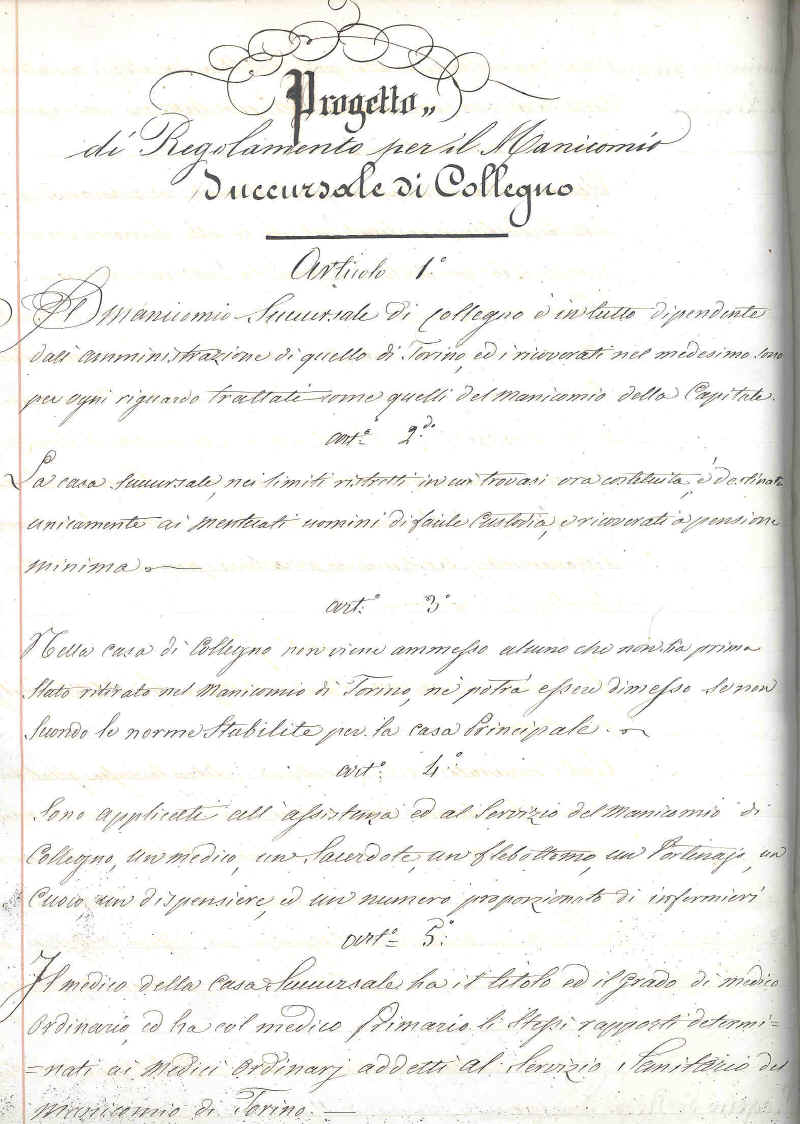 Progetto„
di Regolamento per il Manicomio
Succursale di Collegno
Articolo 1.°
Il manicomio Succursale di Collegno è in tutto dipendente
dall'amministrazione di quello di Torino, ed i ricoverati nel medesimo sono
per ogni riguardo trattati come quelli del manicomio della Capitale.
art.° 2.do
La casa Succursale, nei limiti ristretti in cui trovasi ora costituita, è destinata
unicamente ai mentecati uomini di facile Custodia, e ricoverati a pensione
minima
art.° 3°
Nella casa di Collegno non viene ammesso alcuno che non sia prima
stato ritirato nel Manicomio di Torino, nè potrà essere dimesso se non
secondo le norme Stabilite per la casa Principale.
art.° 4°
Sono applicati all'assistenza ed al Servizio del Manicomio di
Collegno, un medico, un Sacerdote, un flebottomo, un Portinajo, un
Cuoco, un dispensiere, ed un numero proporzionato di infermieri
art.° 5°:
Il medico della Casa Succursale ha il titolo ed il grado di medico
Ordinario, ed ha col medico Primario li stessi rapporti determi=
=nati ai Medici Ordinarj addetti al Servizio Sanitario del
manicomio di Torino.